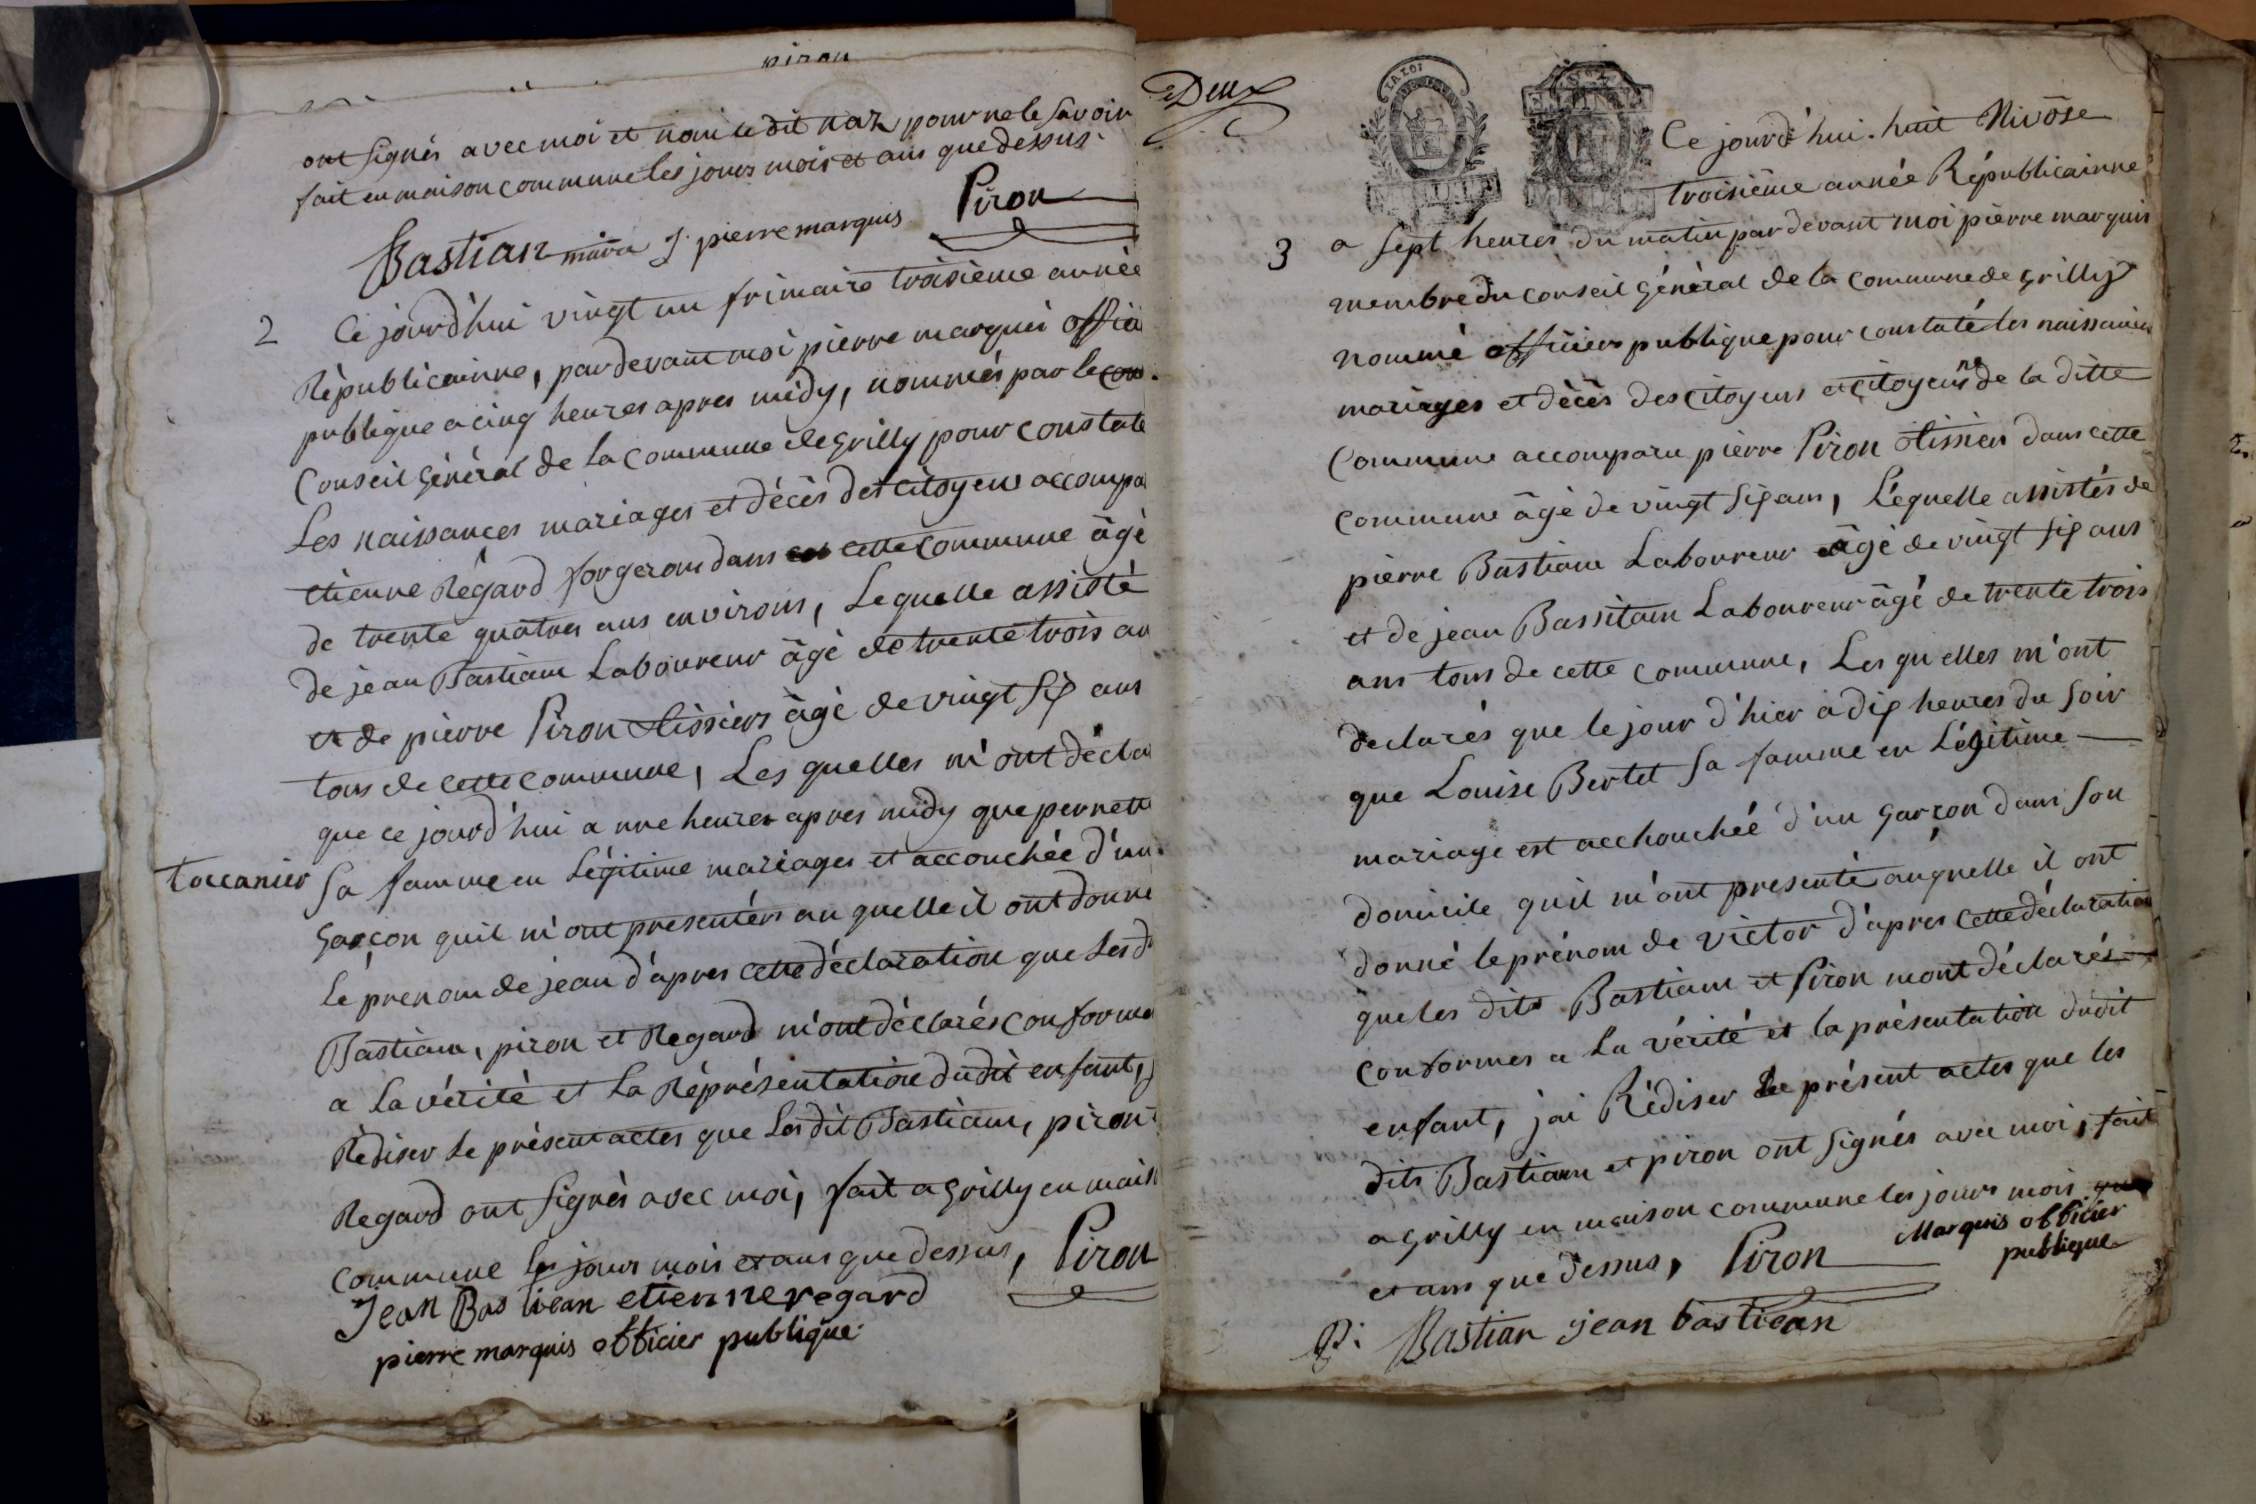 piron
ont signés avec moi et noni le dit naz pour ne le savoir
fait en maison commune les jours mois et ans que dessus.
Bastian J. pierre marquis Piron
2 Ce jourd'hui vingt un frimaire troisième année
Républicainne, pardevant moi pierre marquis offici
publique a cinq heures apres midy, nommés par le con
Conseil général de la commune de Grilly pour constate
Les naissances mariages et décès des citoyens accompa
etienne Régard forgeront dans cette commune âgé
de trente quatres ans environs, Lequelle assisté
de jean Bastiam Laboureur âgé de trente trois an
et de pierre Piron tissiers âgé de vingt six ans
tous de cette commune, Les quelles m'ont décla
que ce jourd'hui a une heures apres midy que pernette
toccanier sa famme en Légitime mariages et accouchée d'un
garçon quil m'ont presentérs au quelle il ont donne
Le prenom de jean d'apres cette déclaration que Les d
Bastiam, piron et Regard m'ont déclarés conforme
a La vérité et La Réprésentation dudit enfant, j
Rédiser Le présent actes que Les dit Bastiam, piron
Regard ont signés avec moi, fait a Grilly en mais
commune les jours mois et ans que dessus, Piron
Jean Bastiean etienne regard
pierre marquis officier publique.
Deux
Ce jourd'hui huit Nivôse
troisième année Républicainne
3 a sept heures du matin pardevant moi pierre marquis
membre du conseil Général de la commune de Grilly
nommé officiers publique pour constaté les naissances
mariages et décès des citoyens et citoyenne de la ditte
Commune accomparu pierre Piron tissier dans cette
commune âgé de vingt six ans, Léquelle assistés de
pierre Bastiam Laboureur âgé de vingt six ans
et de jean Bassitam Laboureur âgé de trente trois
ans tous de cette commune, Les quelles m'ont
declarés que le jour d'hier à dix heures du soir
que Louise Bertet sa famme en Légitime
mariage est acchouchée d'un garzon dans son
domicile quil m'ont presenté auquelle il ont
donné le prénom de victor d'apres cette déclaration
que les dits Bastiam et Piron mont déclarés
conformes a La vérité et la présentation dudit
enfant, jai Rédiser Le présent actes que les
dits Bastiam et piron ont signés avec moi, fait
a Grilly en maison commune les jours mois
et ans que dessus, Piron Marquis officier
publique
P: Bastian jean bastiean